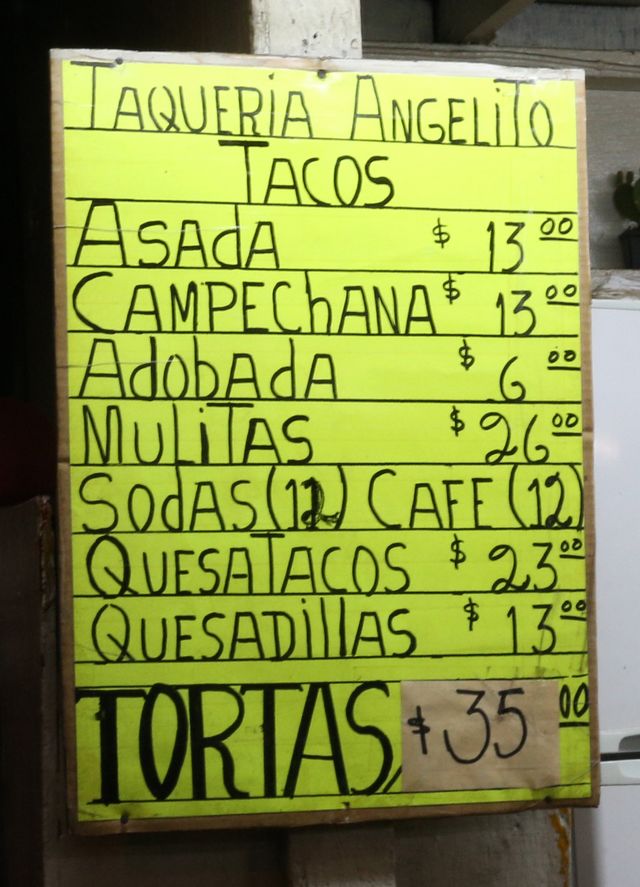 TAQUERiA ANGELiTO
TACOS
ASAdA $ 13 00
CAMPEChANA $ 13 00
AdObAdA $ 6 00
MULiTAS $ 26 00
SOdAS (12) CAFE (12)
QUESATACOS $ 23 00
QUESADillAS $ 13 00
TORTAS $ 35 00